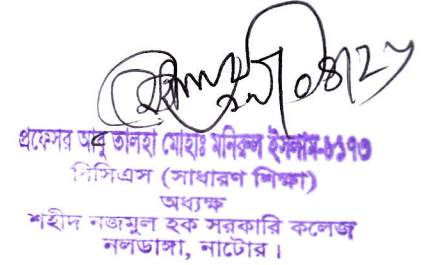 প্রফেসর আবু তালহা মোহাঃ মনিরুল ইসলাম-৮১৭৩
বিসিএস (সাধারণ শিক্ষা)
অধ্যক্ষ
শহীদ নজমুল হক সরকারি কলেজ
নলডাঙ্গা, নাটোর।